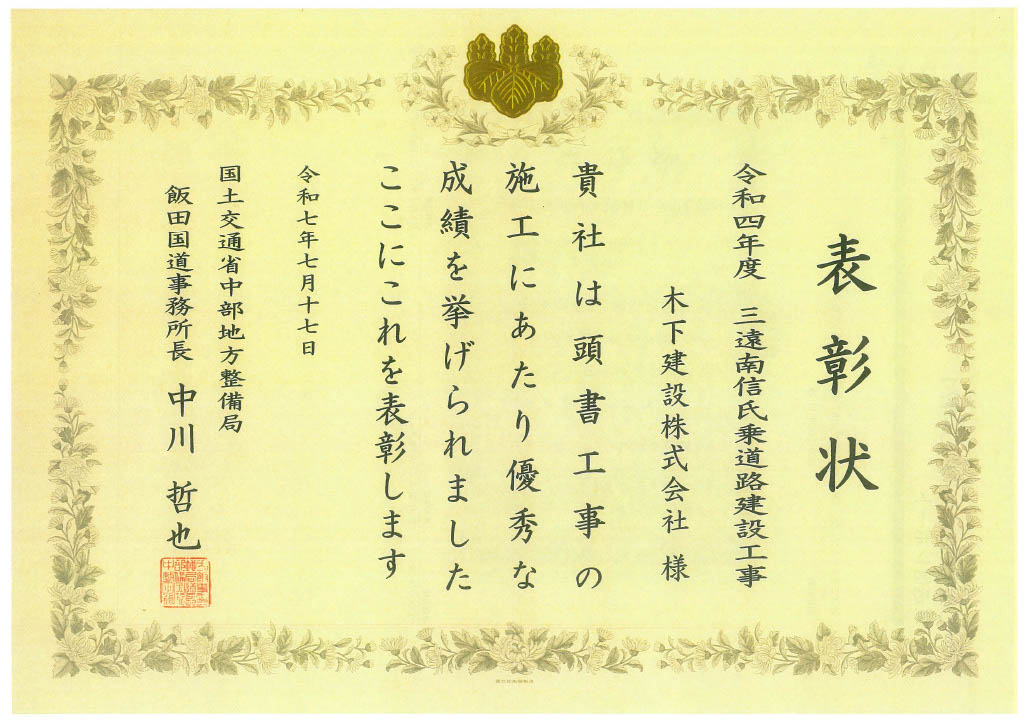 表彰状
令和四年度 三遠南信氏乗道路建設工事
木下建設株式会社 様
貴社は頭書工事の
施工にあたり優秀な
成績を挙げられました
ここにこれを表彰します
令和七年七月十七日
国土交通省中部地方整備局
飯田国道事務所長 中川 哲也